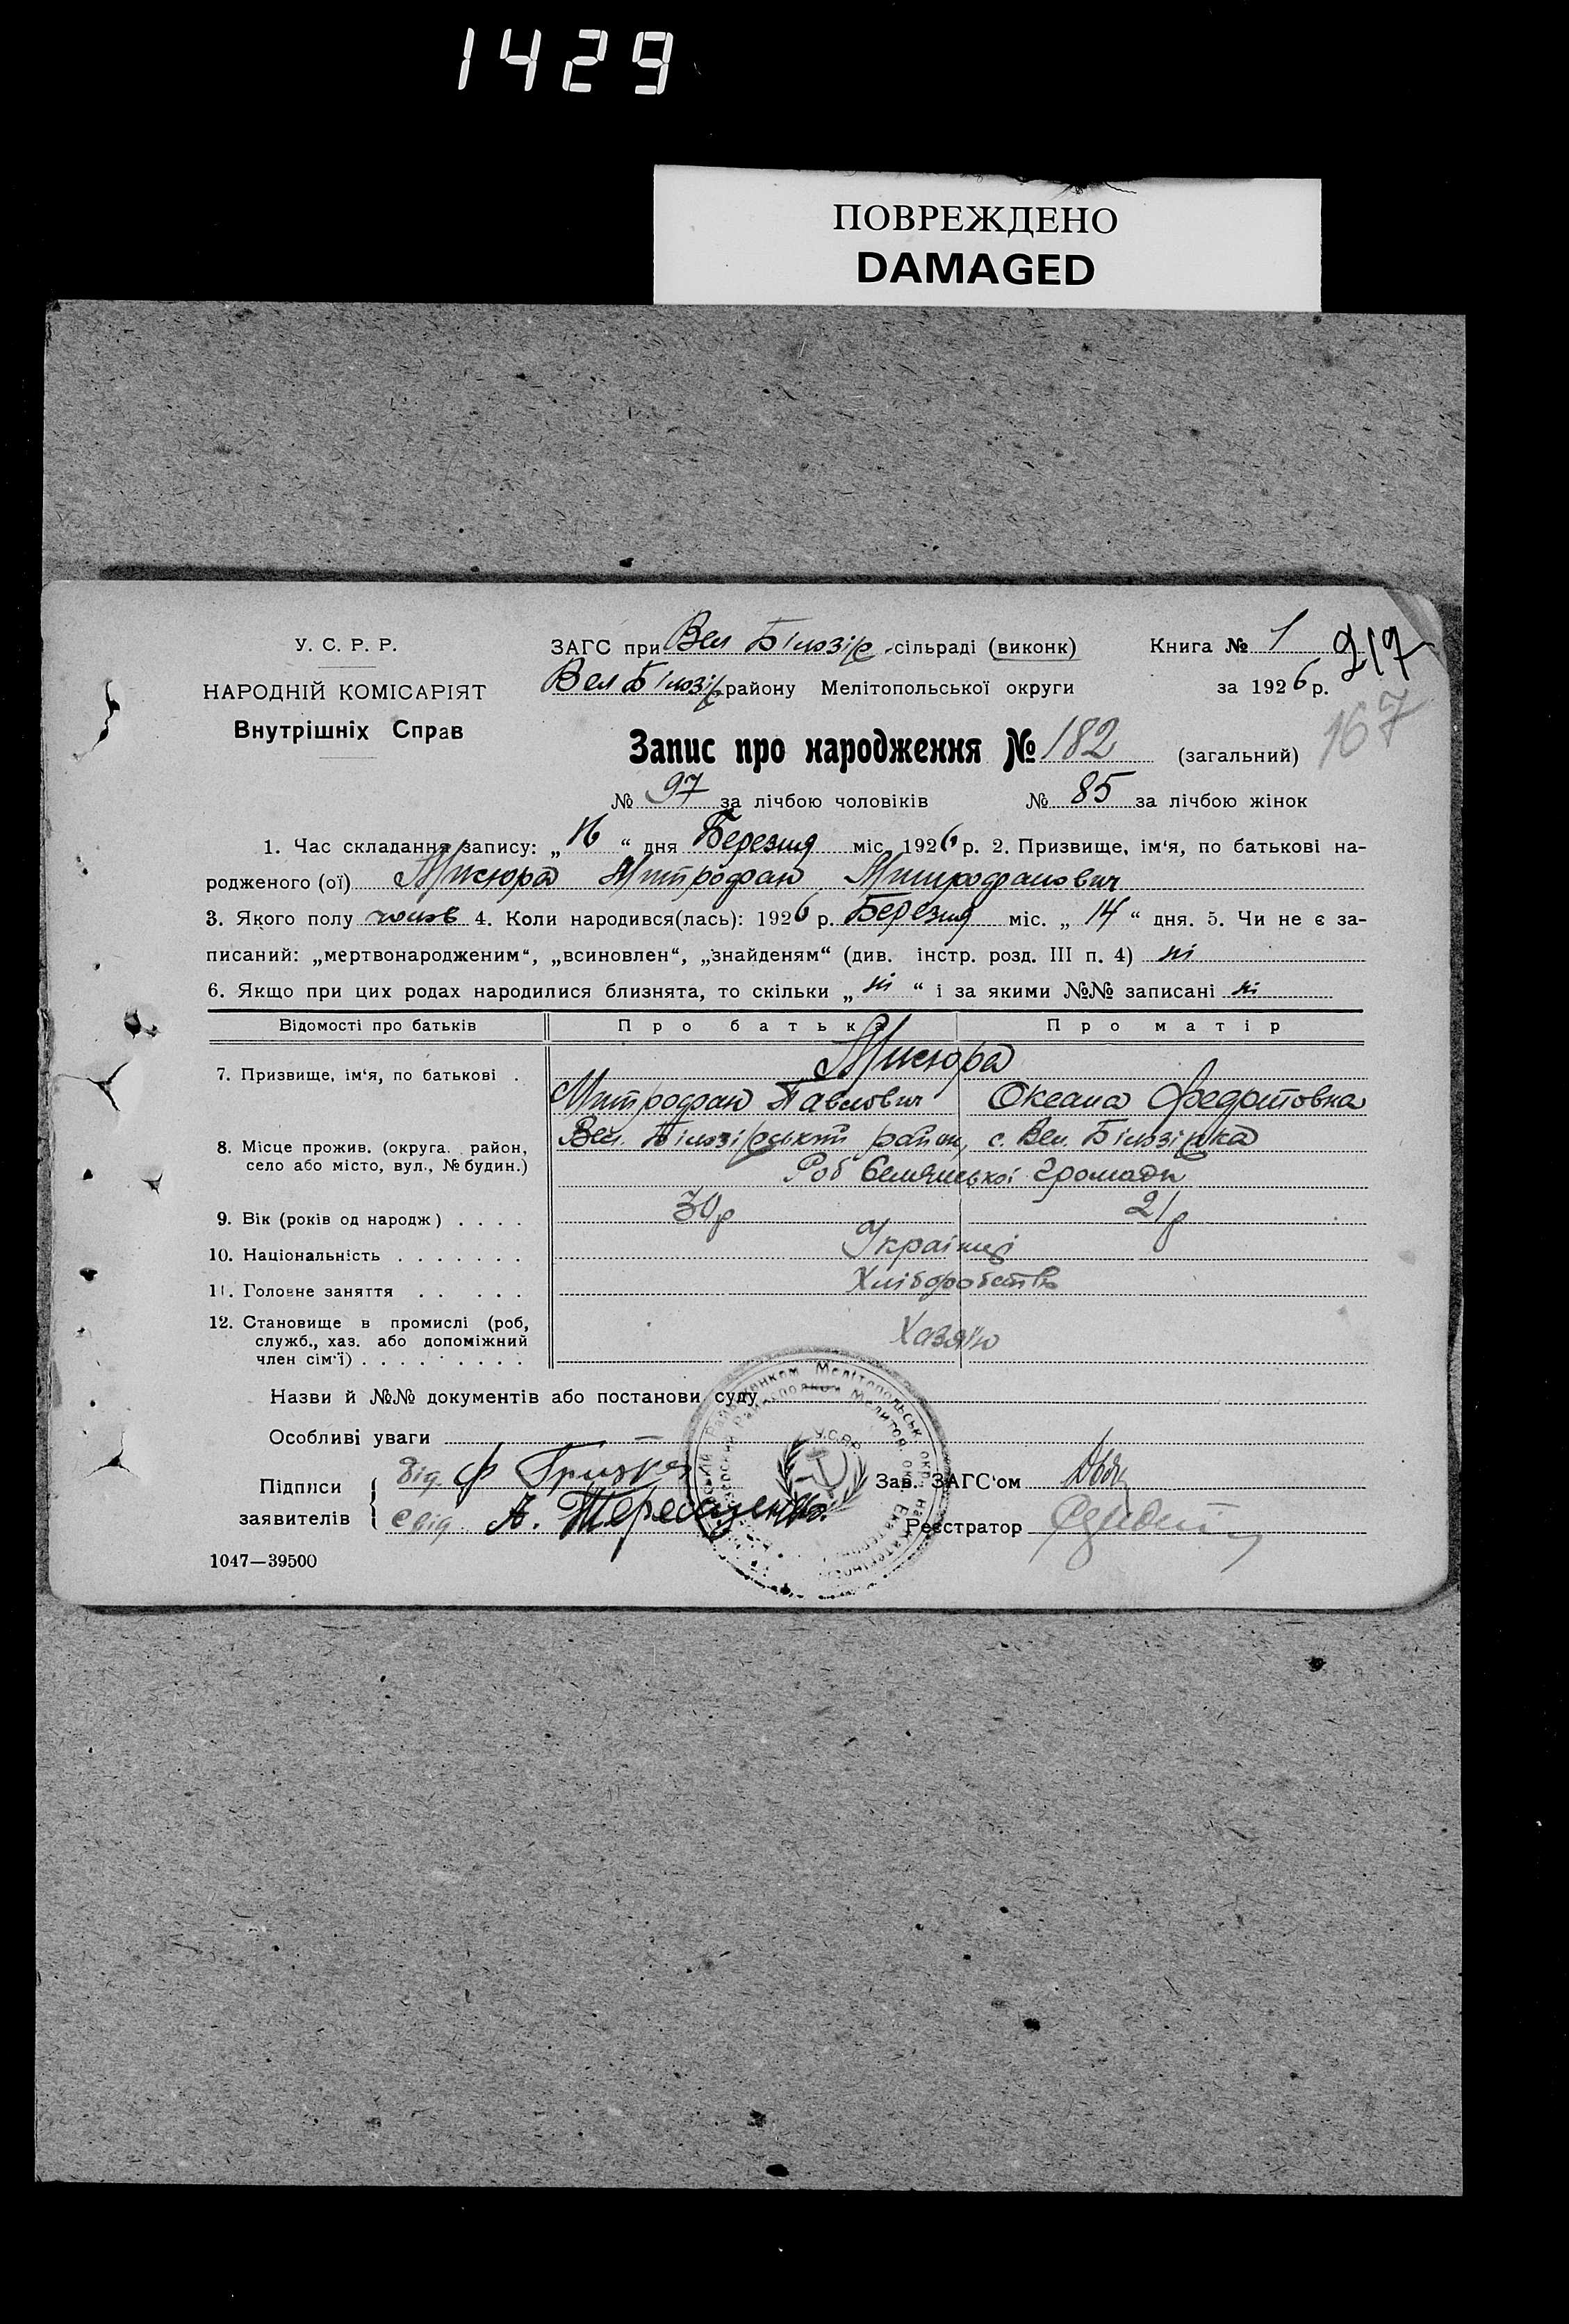 1429
ПОВРЕЖДЕНО
DAMAGED
У. С. Р. Р.
НАРОДНІЙ КОМІСАРІЯТ
Внутрішніх Справ
ЗАГС при Вел Білозір сільраді (виконк)
Вел Білозір району Мелітопольської округи
Книга № 1
217
за 1926 р.
167
Запис про народження № 182 (загальний)
№ 97 за лічбою чоловіків № 85 за лічбою жінок
1. Час складання запису: „16“ дня Березня міс. 1926 р. 2. Призвище, ім‘я, по батькові на-
родженого (ої) Мисюра Митрофан Митрофанович
3. Якого полу чолов 4. Коли народився(лась): 1926 р. Березня міс. „14“ дня. 5. Чи не є за-
писаний: „мертвонародженим“, „всиновлен“, „знайденям“ (див. інстр. розд. III п. 4) ні
6. Якщо при цих родах народилися близнята, то скільки „ні“ і за якими №№ записані ні
Відомості про батьків Про батька Про матір
7. Призвище, ім‘я, по батькові .
Мисюра
Митрофан Павлович Оксана Федотовна
8. Місце прожив. (округа. район, село або місто, вул., № будин.)
Вел. Білозірський район, с. Вел. Білозірка
громади
9. Вік (років од народж) . . . . 30 р 21 р
10. Національність . . . . . . . Українці
11. Головне заняття . . . . . Хліборобство
12. Становище в промислі (роб, служб., хаз. або допоміжний член сім‘ї) . . . . . . . . . Хазяїн
Назви й №№ документів або постанови суду
Особливі уваги —
Підписи
заявителів
від. Ф
свід А. Терещенко
У.С.Р.Р.
Зав. ЗАГС‘ом
Реєстратор
1047—39500